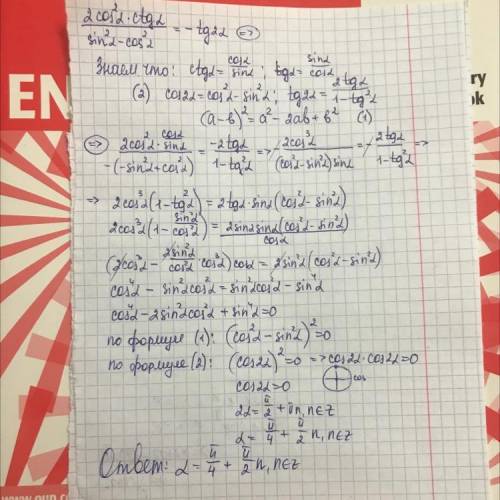 2cos²α·ctgα / sin²α-cos²α = -tg2α ⇒
Знаем что: ctgα = cosα/sinα ; tgα = sinα/cosα
(2) cos2α=cos²α-sin²α ; tg2α = 2tgα/1-tg²α
(a-b)² = a² - 2ab + b² (1)
⇒ 2cos²α · cosα/sinα / -(-sin²α+cos²α) = -2tgα/1-tg²α ⇒ -2cos³α/(cos²α-sin²α)sinα = -2tgα/1-tg²α ⇒
⇒ 2cos³α(1-tg²α) = 2tgα·sinα(cos²α-sin²α)
2cos³α(1-sin²α/cos²α) = 2sinα sinα(cos²α-sin²α)/cosα
(2cos³α - 2sin²α/cos²α · cos³α) cosα = 2sin²α(cos²α-sin²α)
cos⁴α - sin²α cos²α = sin²α cos²α - sin⁴α
cos⁴α - 2sin²α cos²α + sin⁴α = 0
по формуле (1): (cos²α - sin²α)² = 0
по формуле (2): (cos2α)² = 0 => cos2α·cos2α=0
cos2α=0 cos
2α = π/2 + πn, n∈Z
α = π/4 + π/2 n, n∈Z
Ответ: α = π/4 + π/2 n, n∈Z
EN
ry
ok
www.oup.com